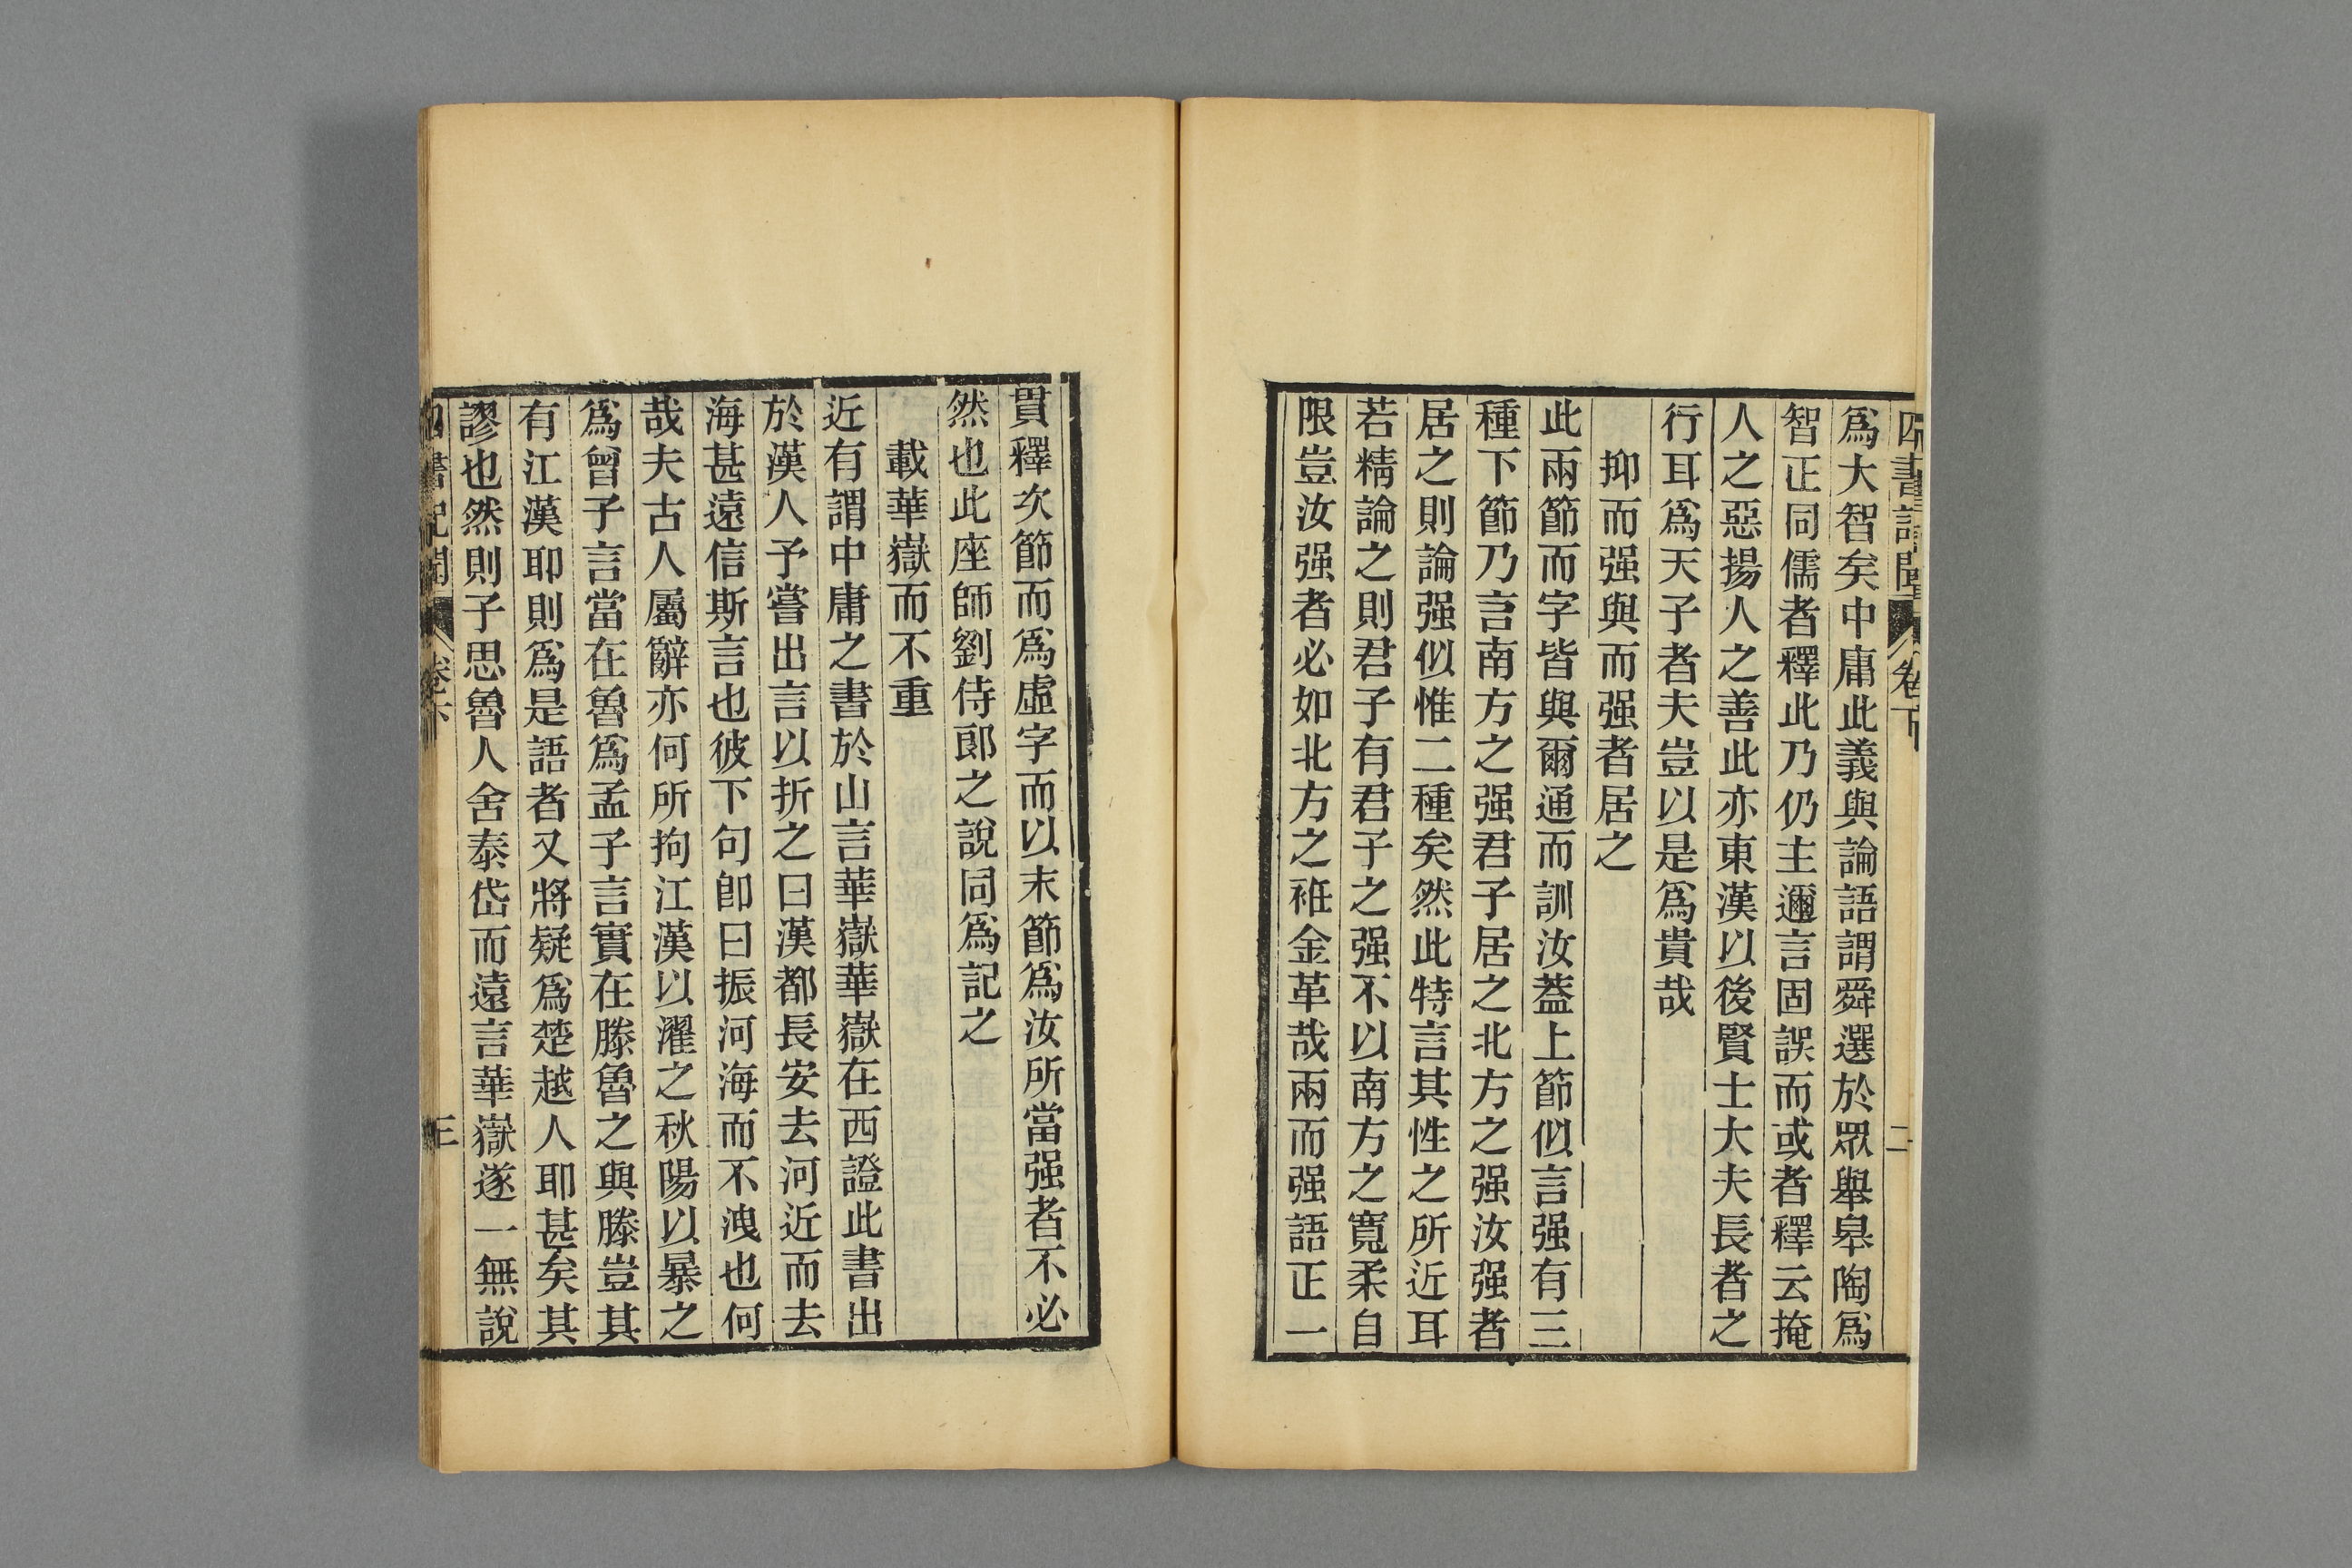 四書記聞 卷下 二
爲大智矣中庸此義與論語謂舜選於眾舉皋陶爲
智正同儒者釋此乃仍主邇言固誤而或者釋云掩
人之惡揚人之善此亦東漢以後賢士大夫長者之
行耳爲天子者夫豈以是爲貴哉
抑而强與而强者居之
此兩節而字皆與爾通而訓汝蓋上節似言强有三
種下節乃言南方之强君子居之北方之强汝强者
居之則論强似惟二種矣然此特言其性之所近耳
若精論之則君子有君子之强不以南方之寬柔自
限豈汝强者必如北方之袵金革哉兩而强語正一
貫釋次節而爲虛字而以末節爲汝所當强者不必
然也此座師劉侍郎之說同爲記之
載華嶽而不重
近有謂中庸之書於山言華嶽華嶽在西證此書出
於漢人予嘗出言以折之曰漢都長安去河近而去
海甚遠信斯言也彼下句卽曰振河海而不洩也何
哉夫古人屬辭亦何所拘江漢以濯之秋陽以暴之
爲曾子言當在魯爲孟子言實在滕魯之與滕豈其
有江漢耶則爲是語者又將疑爲楚越人耶甚矣其
謬也然則子思魯人舍泰岱而遠言華嶽遂一無說
四書記聞 卷下 三